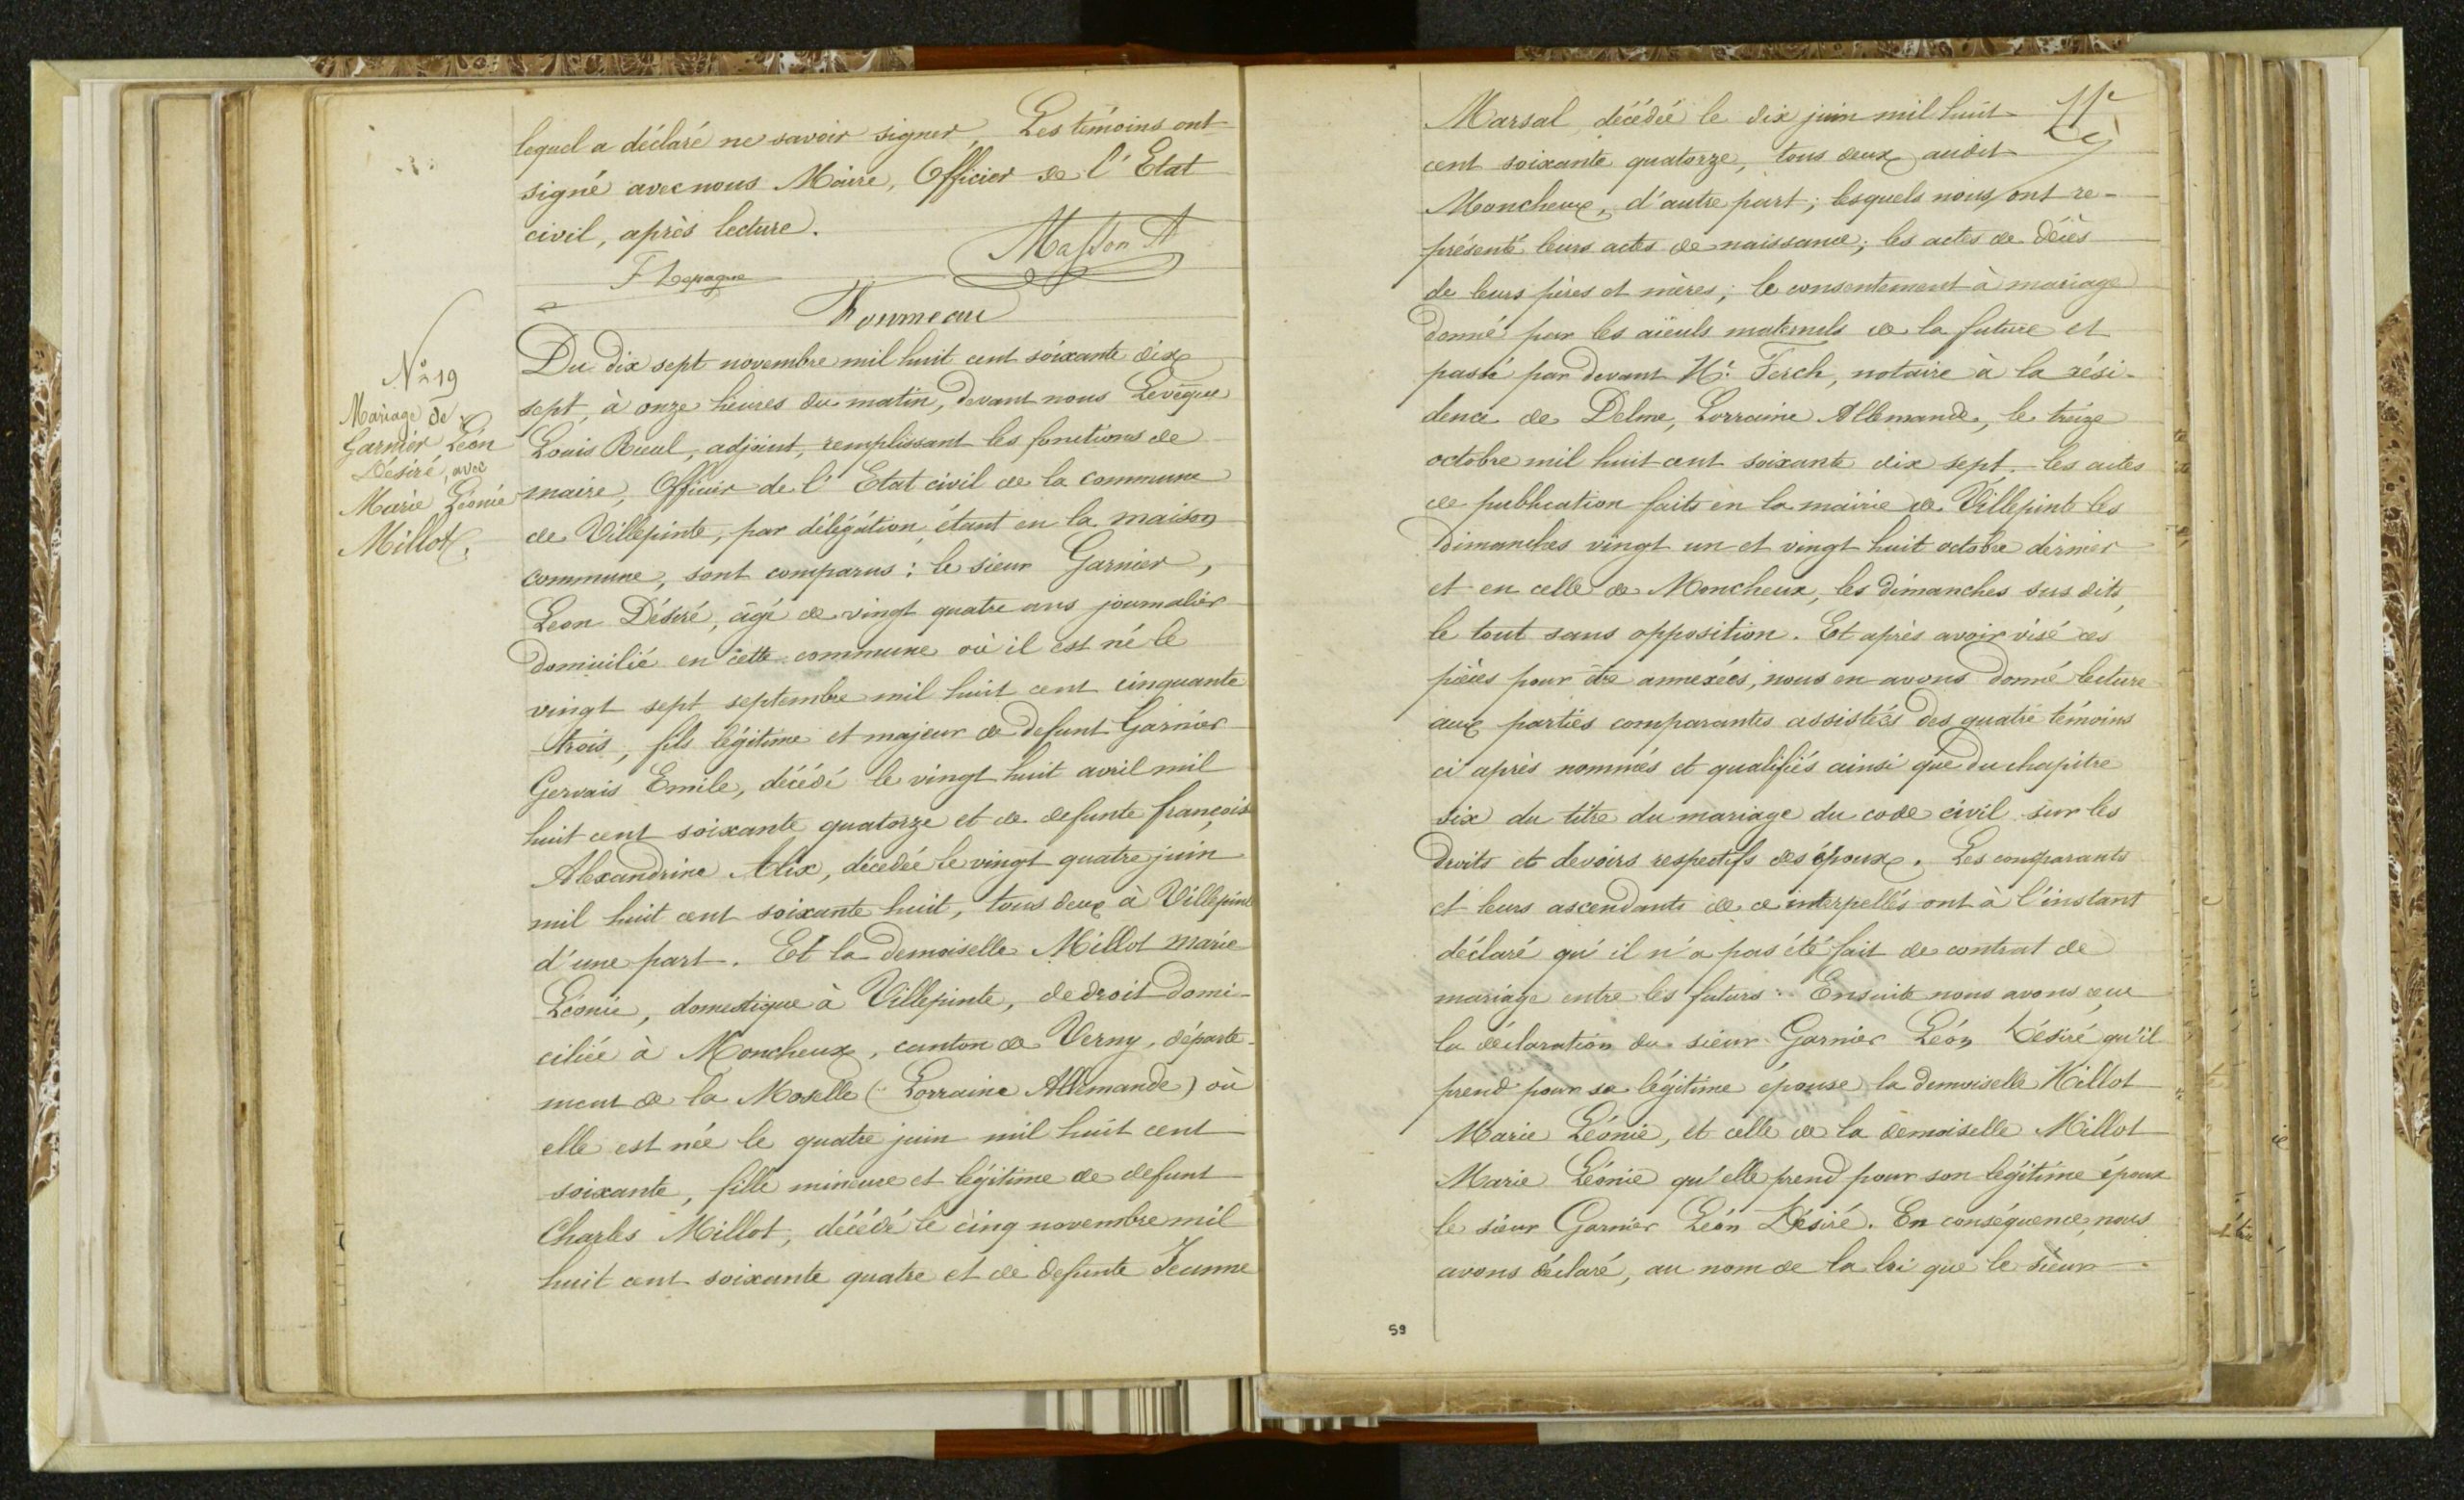 lequel a déclaré ne savoir signer, Les témoins ont
signé avec nous Maire, Officier de l'Etat
civil, après lecture.
Masson A
F Lepagne
Fourneau
N° 19
Mariage de
Garnier Léon
Désiré, avec
Marie Léonie
Millot.
Du dix sept novembre mil huit cent soixante dix
sept, à onze heures du matin, devant nous Levêque
Louis Ruul, adjoint, remplissant les fonctions de
maire, Officier de l'Etat civil de la commune
de Villepinte, par délégation, étant en la maison
commune, sont comparus : le sieur Garnier,
Leon Désiré, âgé de vingt quatre ans journalier
domicilié en cette commune où il est né le
vingt sept septembre mil huit cent cinquante
trois, fils légitime et majeur de defunt Garnier
Gervais Emile, décédé le vingt huit avril mil
huit cent soixante quatorze et de defunte françoise
Alexandrine Alix, décedée le vingt quatre juin
mil huit cent soixante huit, tous deux à Villepinte
d'une part. Et la demoiselle Millot marie
Léonie, domestique à Villepinte, de droit domi-
ciliée à Moncheux, canton de Verny, départe-
ment de la Moselle (Lorraine Allemande) où
elle est née le quatre juin mil huit cent
soixante, fille mineure et légitime de defunt
Charles Millot, décédé le cinq novembre mil
huit cent soixante quatre et de defunte Jeanne
Marsal, décédée le dix juin mil huit
cent soixante quatorze, tous deux audit
Moncheux, d'autre part ; lesquels nous ont re-
présenté leurs actes de naissance ; les actes de décès
de leurs pères et mères ; le consentement à mariage
donné par les aïeuls maternels de la future et
passé par devant Me Ferch, notaire à la rési-
dence de Delme, Lorraine Allemande, le treize
octobre mil huit cent soixante dix sept. les actes
de publication faits en la mairie de Villepinte les
dimanches vingt un et vingt huit octobre dernier
et en celle de Moncheux, les dimanches sus dits,
le tout sans opposition. Et après avoir visé ces
pièces pour être annexées, nous en avons donné lecture
aux parties comparantes assistées des quatre témoins
ci après nommés et qualifiés ainsi que du chapitre
six du titre du mariage du code civil sur les
droits et devoirs respectifs des époux. Les comparants
et leurs ascendants de ce interpellés ont à l'instant
déclaré qu'il n'a pas été fait de contrat de
mariage entre les futurs. Ensuite nous avons reçu
la déclaration du sieur Garnier Léon Désiré qu'il
prend pour sa légitime épouse la demoiselle Millot
Marie Léonie, et celle de la demoiselle Millot
Marie Léonie qu'elle prend pour son légitime époux
le sieur Garnier Léon Désiré. En conséquence, nous
avons déclaré, au nom de la loi que le sieur
59